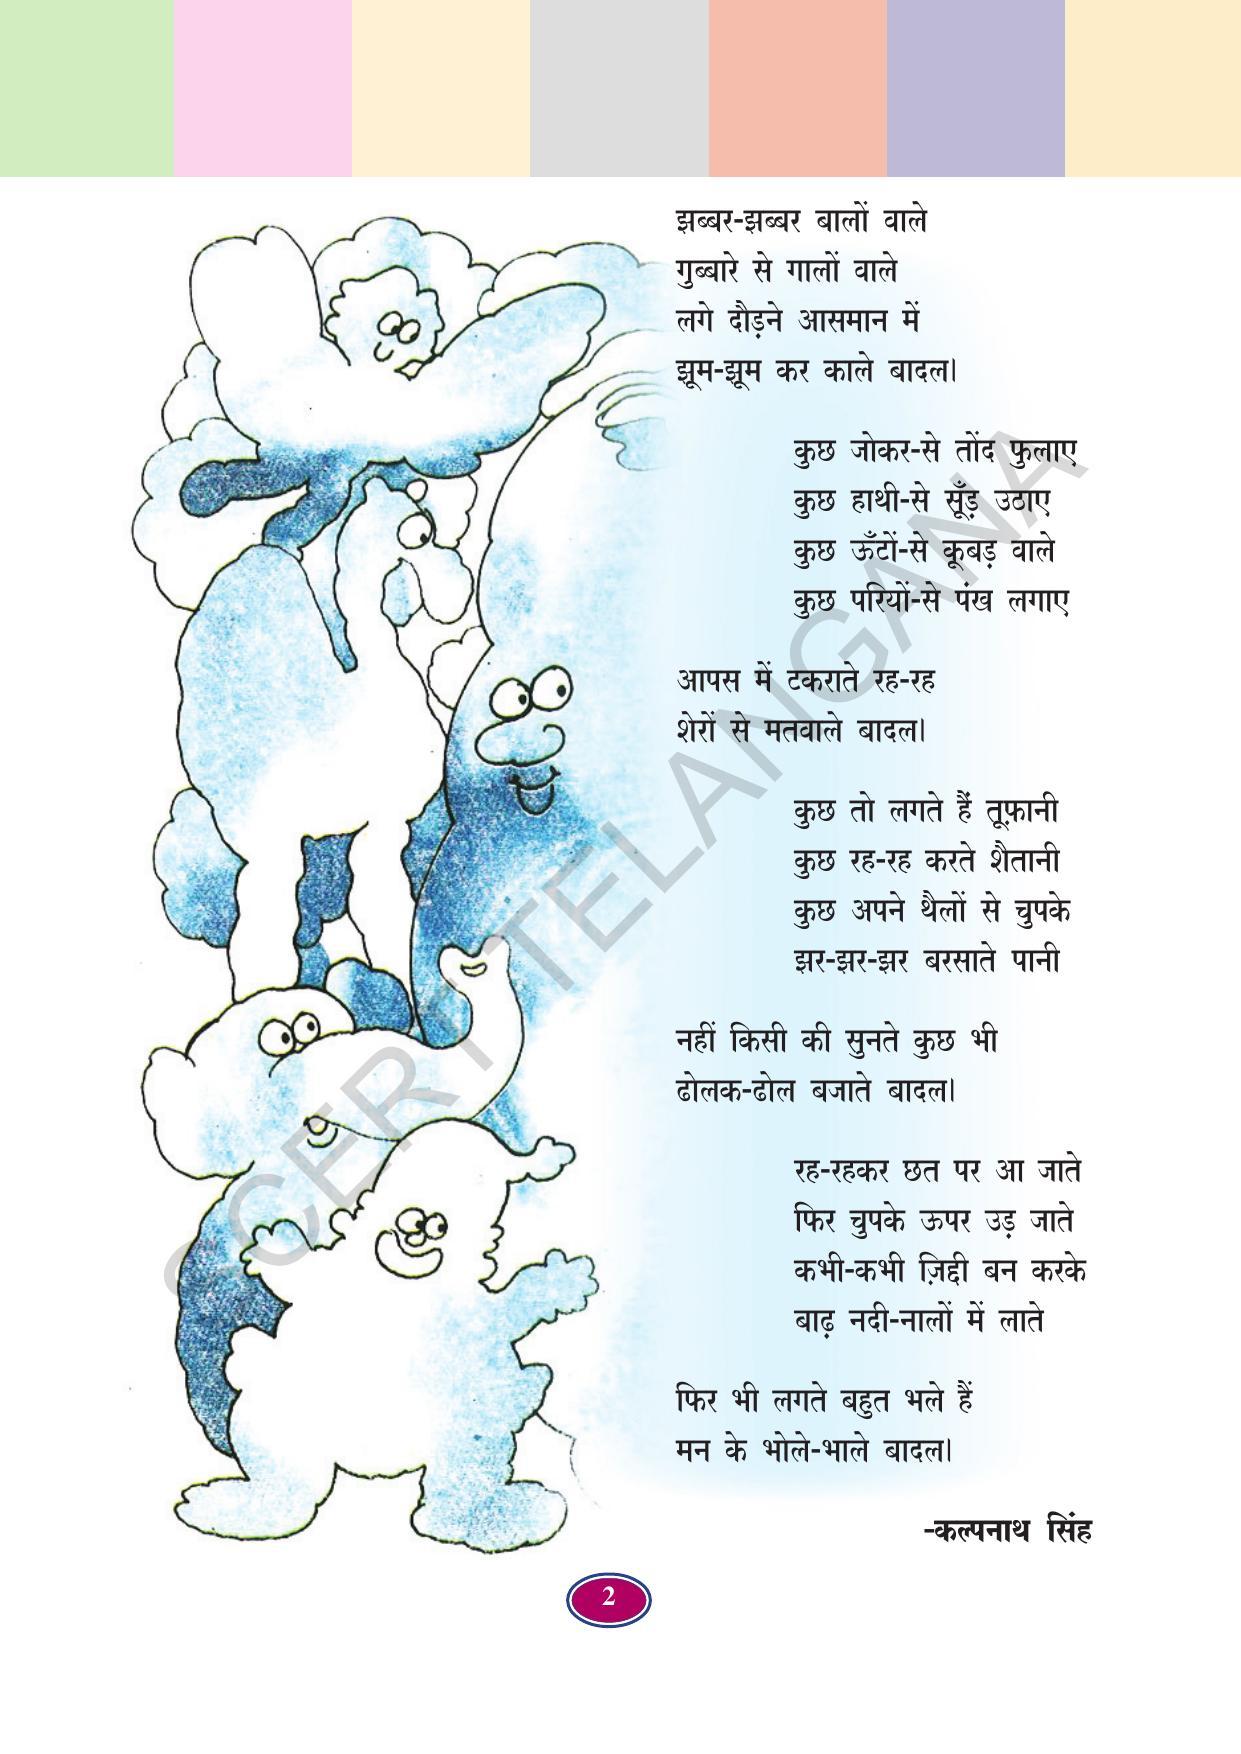 झब्बर-झब्बर बालों वाले
गुब्बारे से गालों वाले
लगे दौड़ने आसमान में
झूम-झूम कर काले बादल।
कुछ जोकर-से तोंद फुलाए
कुछ हाथी-से सूँड़ उठाए
कुछ ऊँटों-से कूबड़ वाले
कुछ परियों-से पंख लगाए
आपस में टकराते रह-रह
शेरों से मतवाले बादल।
कुछ तो लगते हैं तूफ़ानी
कुछ रह-रह करते शैतानी
कुछ अपने थैलों से चुपके
झर-झर-झर बरसाते पानी
नहीं किसी की सुनते कुछ भी
ढोलक-ढोल बजाते बादल।
रह-रहकर छत पर आ जाते
फिर चुपके ऊपर उड़ जाते
कभी-कभी ज़िद्दी बन करके
बाढ़ नदी-नालों में लाते
फिर भी लगते बहुत भले हैं
मन के भोले-भाले बादल।
-कल्पनाथ सिंह
2
SCERT TELANGANA